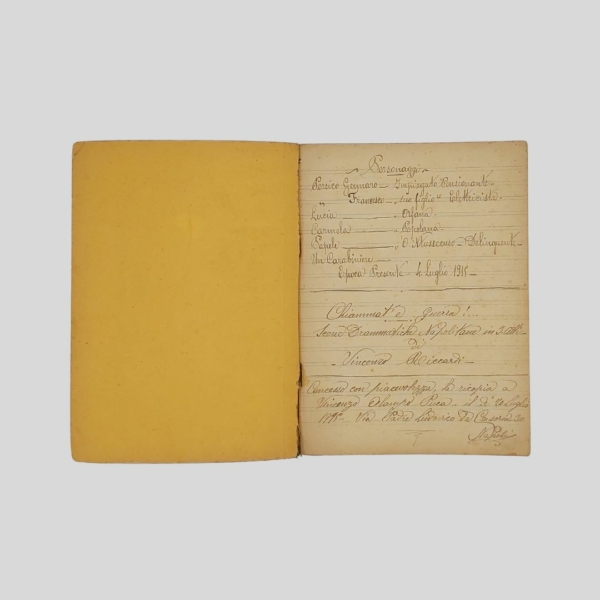 Personaggi
Persico Gennaro — Impiegato Pensionante —
" Francesco — suo figlio Elettricista
Lucia — Orfana
Carmela — Popolana
Papele — 'O Mussuso — Delinquent
Un Carabiniere —
Epoca Presente — 4 Luglio 1915 —
Chiammat' 'e Guerra!...
Scene Drammatiche Napolitane in 3 Atti
di
— Vincenzo Riccardi —
Concesso con piacevolezza, la ricopia a
Vincenzo Puca — il dì 20 luglio
Via Padre Ludovico da Casoria 20
Napoli